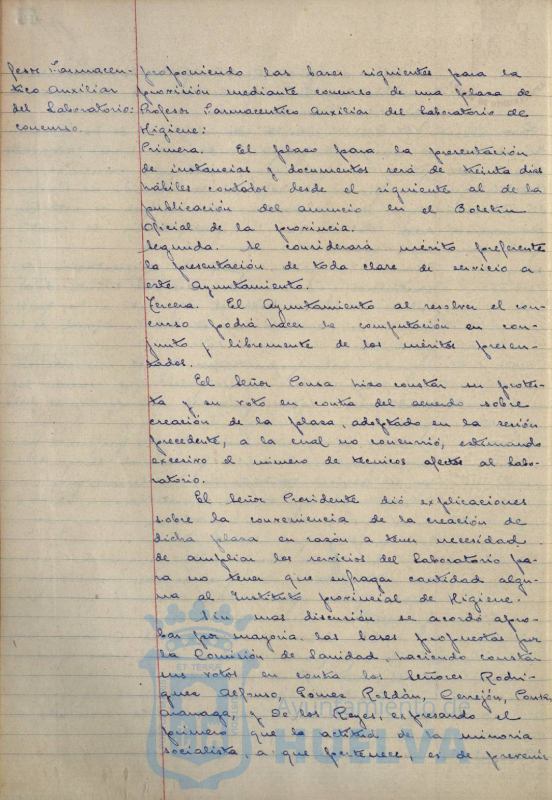 fesor Farmaceu-
tico Auxiliar
del Laboratorio:
concurso.
proponiendo las bases siguientes para la
provisión mediante concurso de una plaza de
Profesor Farmaceutico Auxiliar del Laboratorio de
Higiene:
Primera. El plazo para la presentación
de instancias y documentos será de treinta dias
hábiles contados desde el siguiente al de la
publicación del anuncio en el Boletin
Oficial de la provincia.
Segunda. Se considerará mérito preferente
la presentación de toda clase de servicio a
este Ayuntamiento.
Tercera. El Ayuntamiento al resolver el con-
curso podrá hacer la computación en con-
junto y libremente de los méritos presen-
tados.
El Señor Ponsa hizo constar su protes-
ta y su voto en contra del acuerdo sobre
creación de la plaza, adoptado en la sesión
precedente, a la cual no concurrió, estimando
excesivo el número de técnicos afectos al Labo-
ratorio.
El Señor Presidente dió explicaciones
sobre la conveniencia de la creación de
dicha plaza en razón a tener necesidad
de ampliar los servicios del Laboratorio pa-
ra no tener que sufragar cantidad algu-
na al Instituto provincial de Higiene.
Sin mas discusión se acordó apro-
bar por mayoria las bases propuestas por
la Comisión de Sanidad, haciendo constar
sus votos en contra los Señores Rodri-
guez Alfonso, Gomez Roldán, Cerrejón, Ponsa,
y De los Reyes, expresando el
primero que la actitud de la minoria
socialista, a que pertenece, es de prevenir
ET TERRÆ
Ayuntamiento de
HUELVA